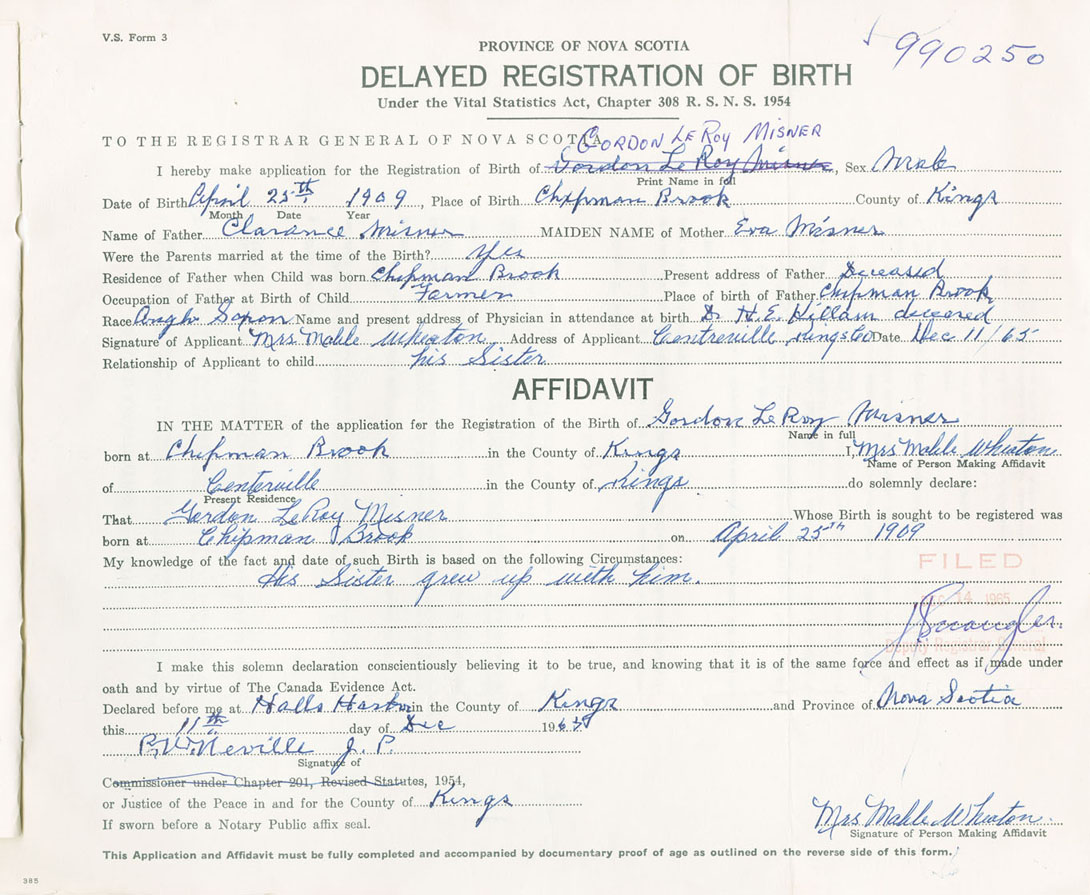 V.S. Form 3
990250
PROVINCE OF NOVA SCOTIA
DELAYED REGISTRATION OF BIRTH
Under the Vital Statistics Act, Chapter 308 R. S. N. S. 1954
TO THE REGISTRAR GENERAL OF NOVA SCOTIA
GORDON LEROY MISNER
I hereby make application for the Registration of Birth of Gordon LeRoy Misner, Sex Male
Print Name in full
Date of Birth April 25th 1909, Place of Birth Chipman Brook County of Kings
Month Date Year
Name of Father Clarance Misner MAIDEN NAME of Mother Eva Misner
Were the Parents married at the time of the Birth? Yes
Residence of Father when Child was born Chipman Brook Present address of Father Deceased
Occupation of Father at Birth of Child Farmer Place of birth of Father Chipman Brook
Race Anglo Saxon Name and present address of Physician in attendance at birth Dr H. E. deceased
Signature of Applicant Mrs Mable Wheaton Address of Applicant Centreville Kings Co Date Dec 11/65
Relationship of Applicant to child his Sister
AFFIDAVIT
IN THE MATTER of the application for the Registration of the Birth of Gordon LeRoy Misner
Name in full
born at Chipman Brook in the County of Kings I, Mrs Mable Wheaton
Name of Person Making Affidavit
of Centerville in the County of Kings do solemnly declare:
Present Residence
That Gordon LeRoy Misner Whose Birth is sought to be registered was
born at Chipman Brook on April 25th 1909
My knowledge of the fact and date of such Birth is based on the following Circumstances:
His Sister grew up with him.
FILED
DEC 14 1965
Deputy Registrar General
I make this solemn declaration conscientiously believing it to be true, and knowing that it is of the same force and effect as if made under
oath and by virtue of The Canada Evidence Act.
Declared before me at Halls Harbor in the County of Kings and Province of Nova Scotia
this 11th day of Dec 1965
R. W. Neville J. P.
Signature of
Commissioner under Chapter 201, Revised Statutes, 1954,
or Justice of the Peace in and for the County of Kings
If sworn before a Notary Public affix seal.
Mrs Mable Wheaton.
Signature of Person Making Affidavit
This Application and Affidavit must be fully completed and accompanied by documentary proof of age as outlined on the reverse side of this form.
385